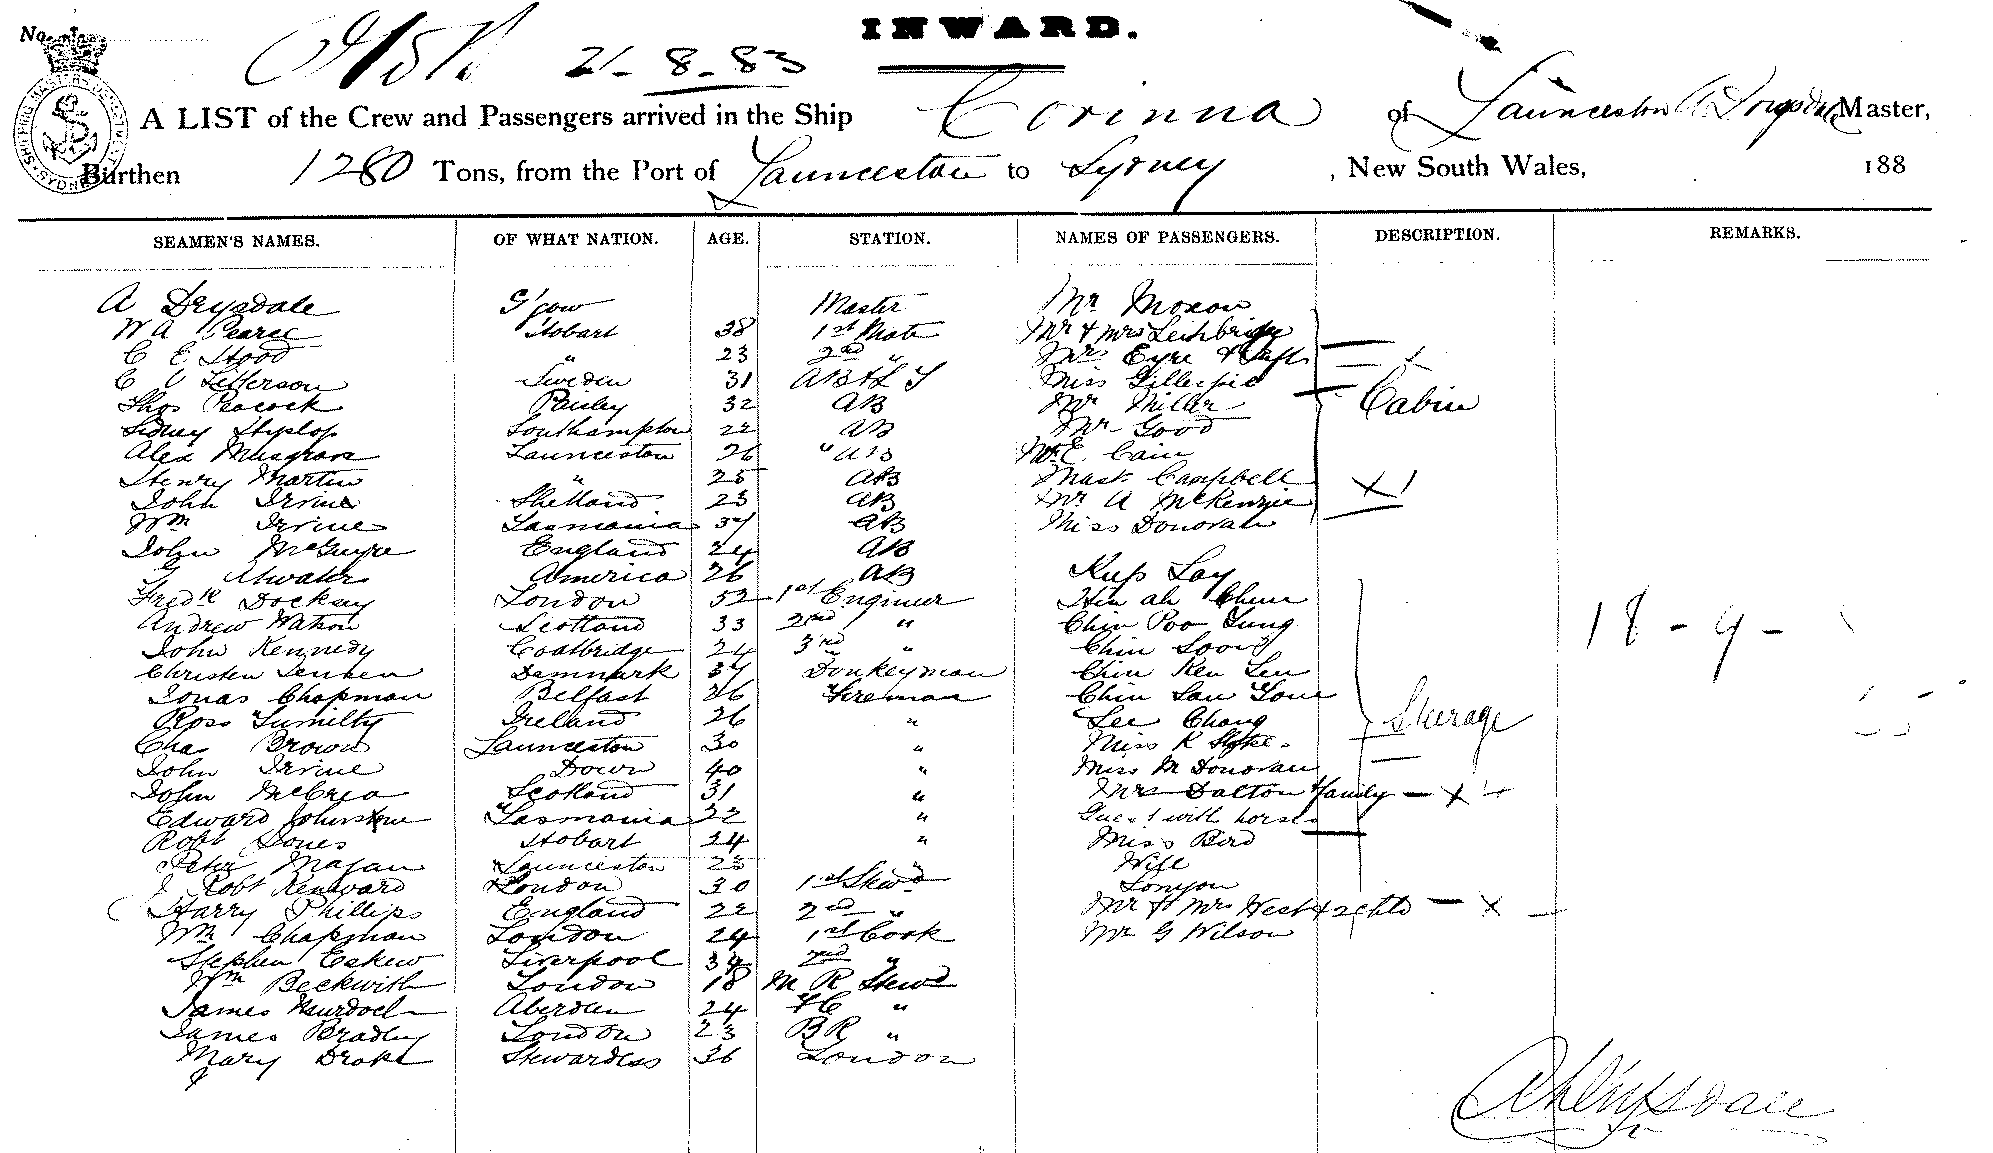 No.
INWARD.
21-8-83
A LIST of the Crew and Passengers arrived in the Ship Corinna of Launceston A Drysdale Master,
Burthen 1280 Tons, from the Port of Launceston to Sydney, New South Wales, 188
SEAMEN'S NAMES. OF WHAT NATION. AGE. STATION. NAMES OF PASSENGERS. DESCRIPTION. REMARKS.
A Drysdale G'gow Master Mr Moxon
W A Pearce Hobart 38 1st Mate Mr & Mrs Lethbridge
C E Hood " 23 2nd " Mrs Eyre &
C Sweden 31 AB & L T Miss Gillespie
Thos Peacock Paisley 32 AB Mr Miller Cabin
Sidney Southampton 22 AB Mr Good
Alex Musgrave Launceston 26 " AB Cain
Henry Martin " 25 AB Mast. Campbell
John Irvine Shetland 23 AB Mr A McKenzie
Wm Irvine Tasmania 37 AB Miss Donovan
John McGuyre England 24 AB
Atwater America 26 AB Kup Lay
Fredk Docksey London 52 1st Engineer Hin ah Chun
Andrew Watson Scotland 33 2nd " Chin Poo Tung 18-9-
John Kennedy Coatbridge 24 3rd " Chin Soong
Christen Denmark 37 Donkeyman Chin Ken Len
Jonas Chapman Belfast 26 Fireman Chin San
Ross Tumilty Ireland 26 " Lee Chong Steerage
Chas Brown Launceston 30 " Miss K
John Irvine Down 40 " Miss M Donovan
John McCrea Scotland 31 " Mrs Dalton & family
Edward Johnstone Tasmania 22 " with horses
Robt Jones Hobart 24 " Miss Bird
Peter Magan Launceston 23 " Wife
Robt Kenward London 30 1st Stewd
Harry Phillips England 22 2nd " Mr & Mrs West & 2 chld
Wm Chapman London 24 1st Cook Mr G Wilson
Stephen Eskew Liverpool 34 2nd "
Wm Beckwith London 18 M R Stewd
James Murdoch Aberdeen 24 FC "
James Bradley London 23 BR "
Mary Drake Stewardess 36 London
A Drysdale